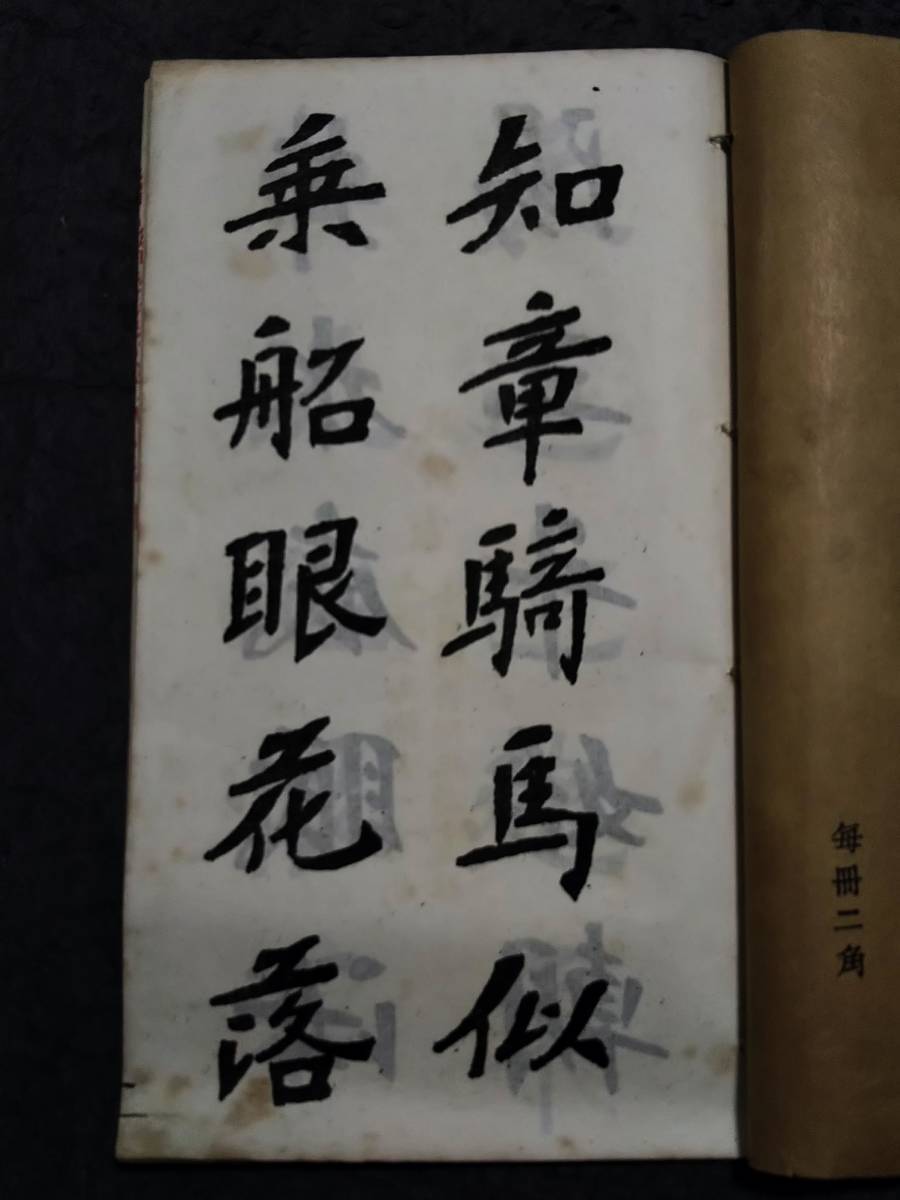 知章騎馬似
乗船眼花落
每冊二角